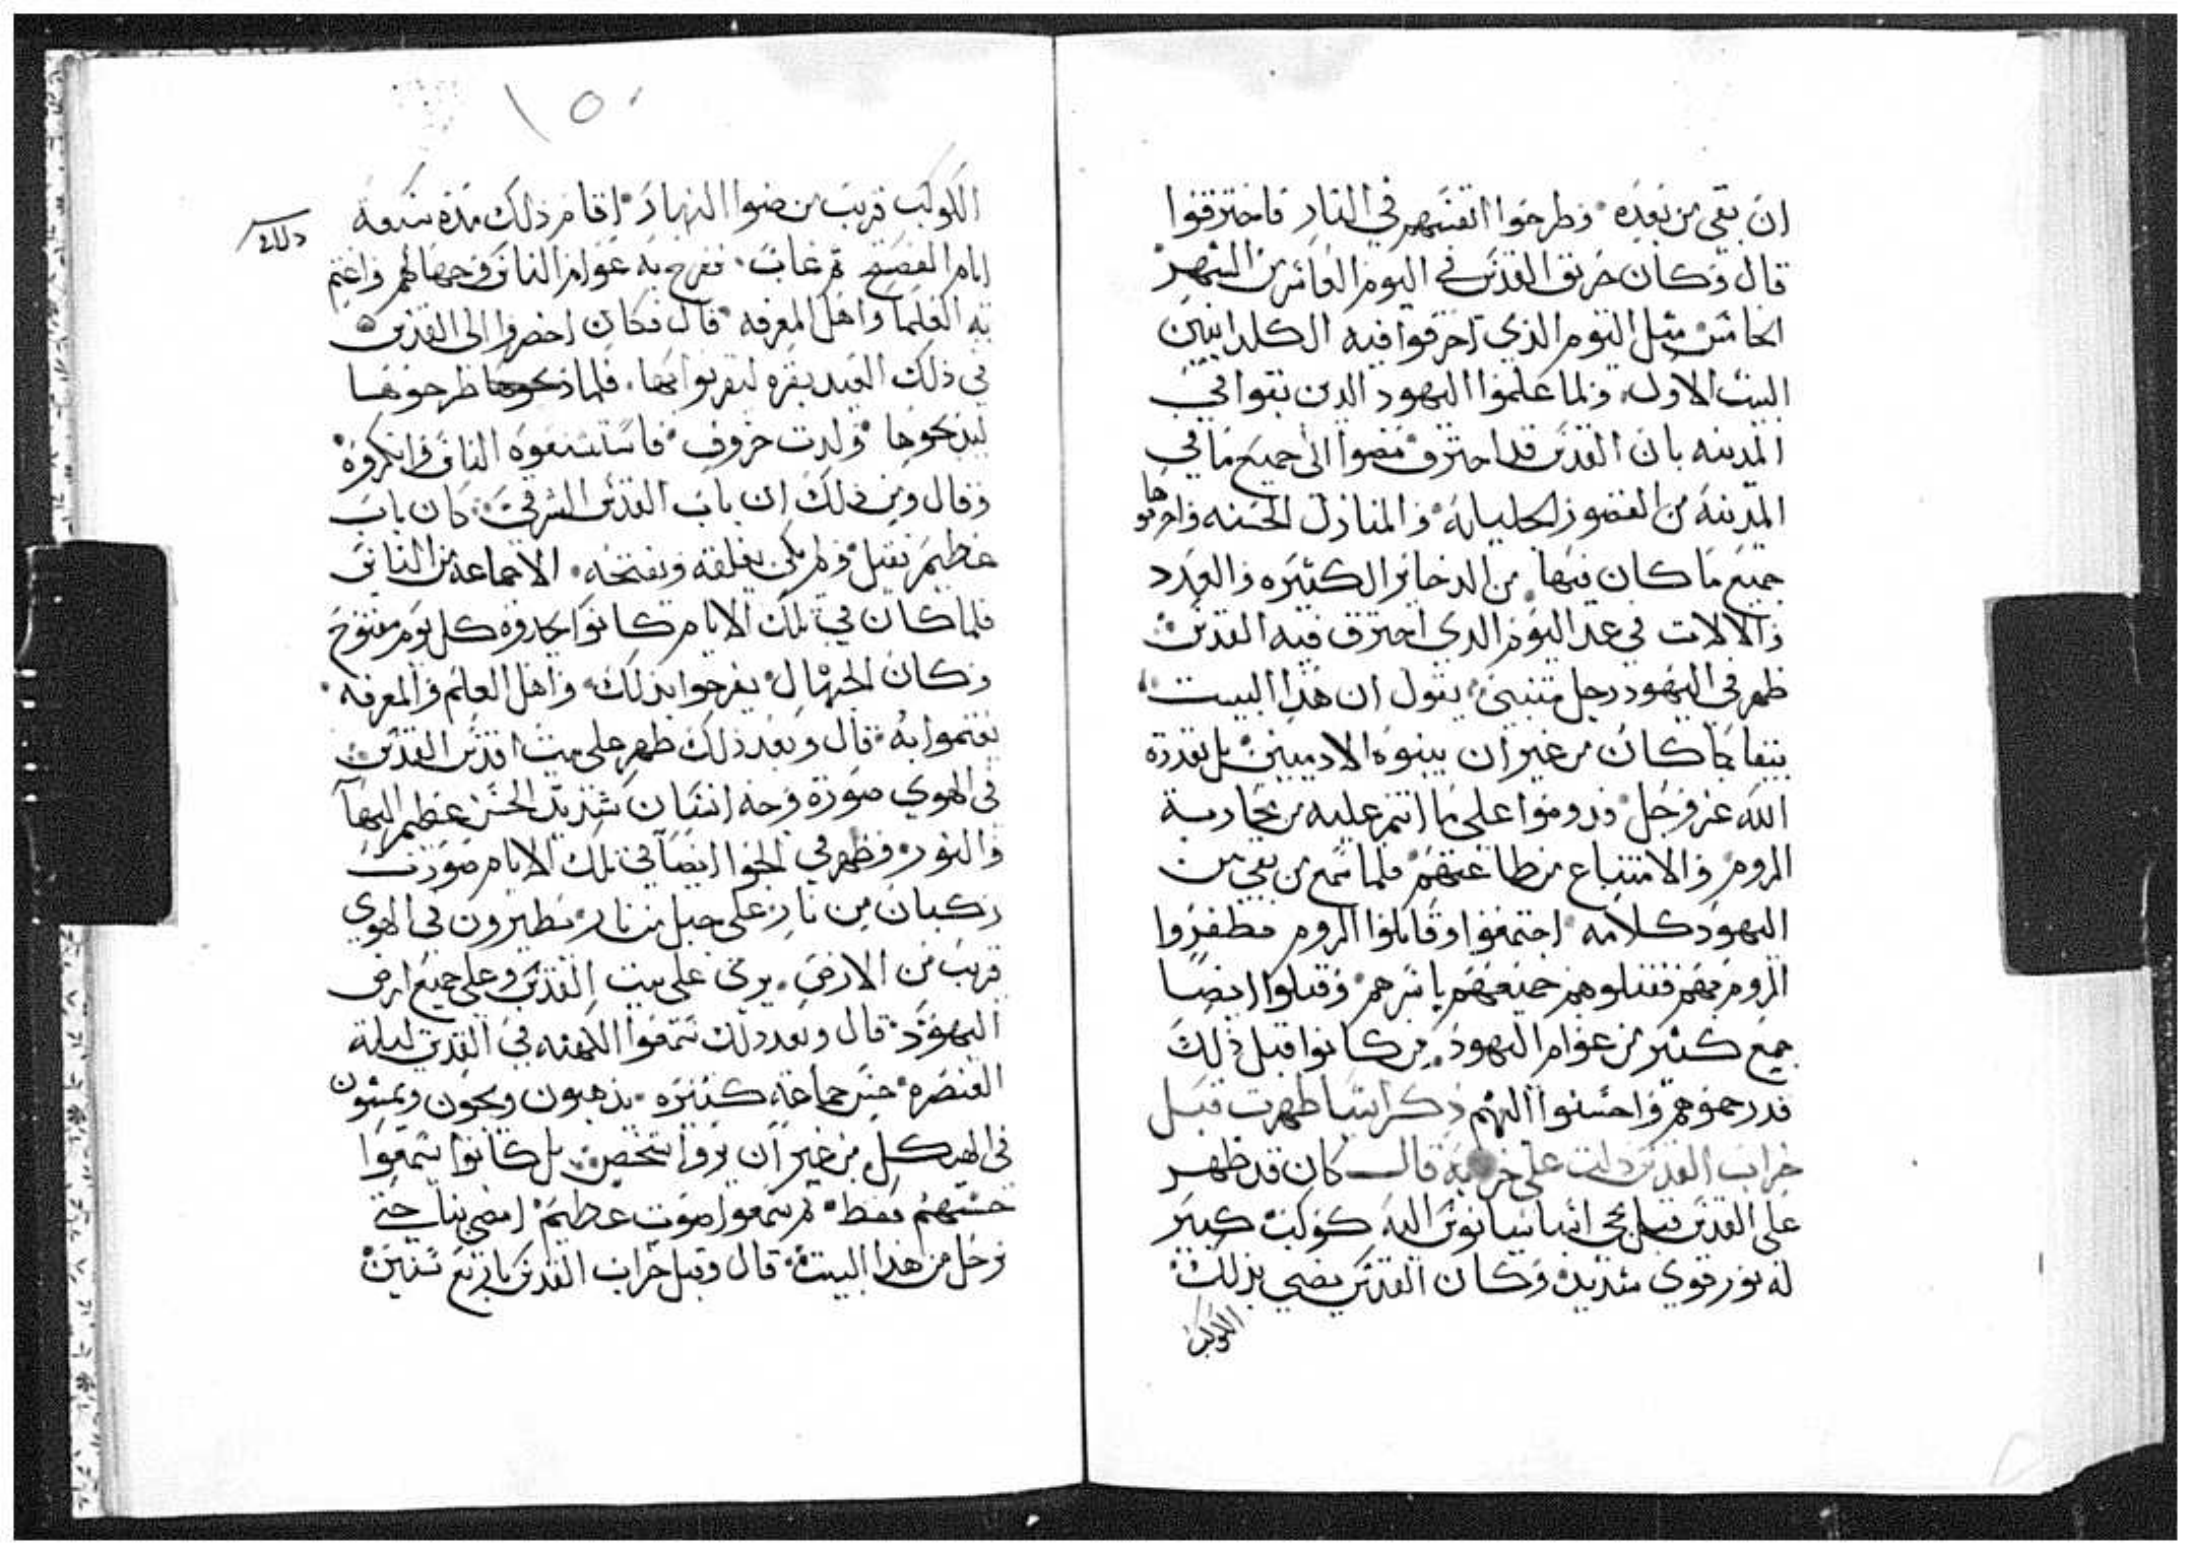 ان بقي من بعده وطرحوا انفسهم في النار فاحترقوا
قال وكان حريق القدس في اليوم العاشر من الشهر
الخامس مثل اليوم الذي احرقوا فيه الكلدانيين
البيت الاول ولما علموا اليهود الدين بقوا في
المدينه بان القدس قد احترق مضوا الى جميع ما في
المدينه من القصور الجليله والمنازل الحسنه واحرقوا
جميع ما كان فيها من الدخاير الكثيره والعدد
والالات في غد اليوم الدي احترق فيه القدس
ظهر في اليهود رجل متنبي يقول ان هذا البيت
يبنا كما كان من غير ان يبنوه الادميين بل بقدرة
الله عز وجل ودوموا على ما انتم عليه من محاربة
الروم والامتناع من طاعتهم فلما سمع من بقي من
اليهود كلامه اجتمعوا وقاتلوا الروم فظفروا
الروم بهم فقتلوهم جميعهم باسرهم وقتلوا ايضا
جمع كثير من عوام اليهود من كانوا قبل ذلك
قد رحموهم واحسنوا اليهم ذكر اشيا ظهرت قبل
خراب القدس دلت على خرابه قال كان قد ظهر
على القدس قبل مجي اسباسيانوس اليه كوكب كبير
له نور قوي شديد وكان القدس يضي بذلك
الكوكب
١٥٠
الكوكب قريب من ضوا النهار اقام ذلك مدة سبعة
ايام الفصح ثم غاب ففرح به عوام الناس وجهالهم واغتم
به العلما واهل المعرفه قال فكان احضروا الى القدس
في ذلك العيد بقره ليقربوا بها فلما طرحوها
ليدبحوها ولدت خروف فاستشنعوه الناس وانكروه
وقال ومن ذلك ان باب القدس الشرقي كان باب
عظيم ثقيل ولم يكن يغلقه ويفتحه الا جماعة من الناس
فلما كان في تلك الايام كانوا يجدوه كل يوم مفتوح
وكان الجهال يفرحوا بذلك واهل العلم والمعرفه
يغتموا به قال وبعد ذلك ظهر على بيت قدس القدس
في الهوي صورة وجه انسان شديد الحسن عظيم البها
والنور وظهر في الجوا ايضا في تلك الايام صورت
ركبان من نار على خيل من نار يطيرون في الهوي
قريب من الارض يرى على بيت القدس وعلى جميع ارض
اليهود قال وبعد دلك سمعوا الكهنه في القدس ليلة
العنصره حس جماعة كثيره يذهبون ويجون ويمشون
في الهيكل من غير ان يروا شخص بل كانوا يسمعوا
حسهم فقط ثم سمعوا صوت عظيم امضي بنا حتى
نرحل من هدا البيت قال وقبل خراب القدس باربع سنين